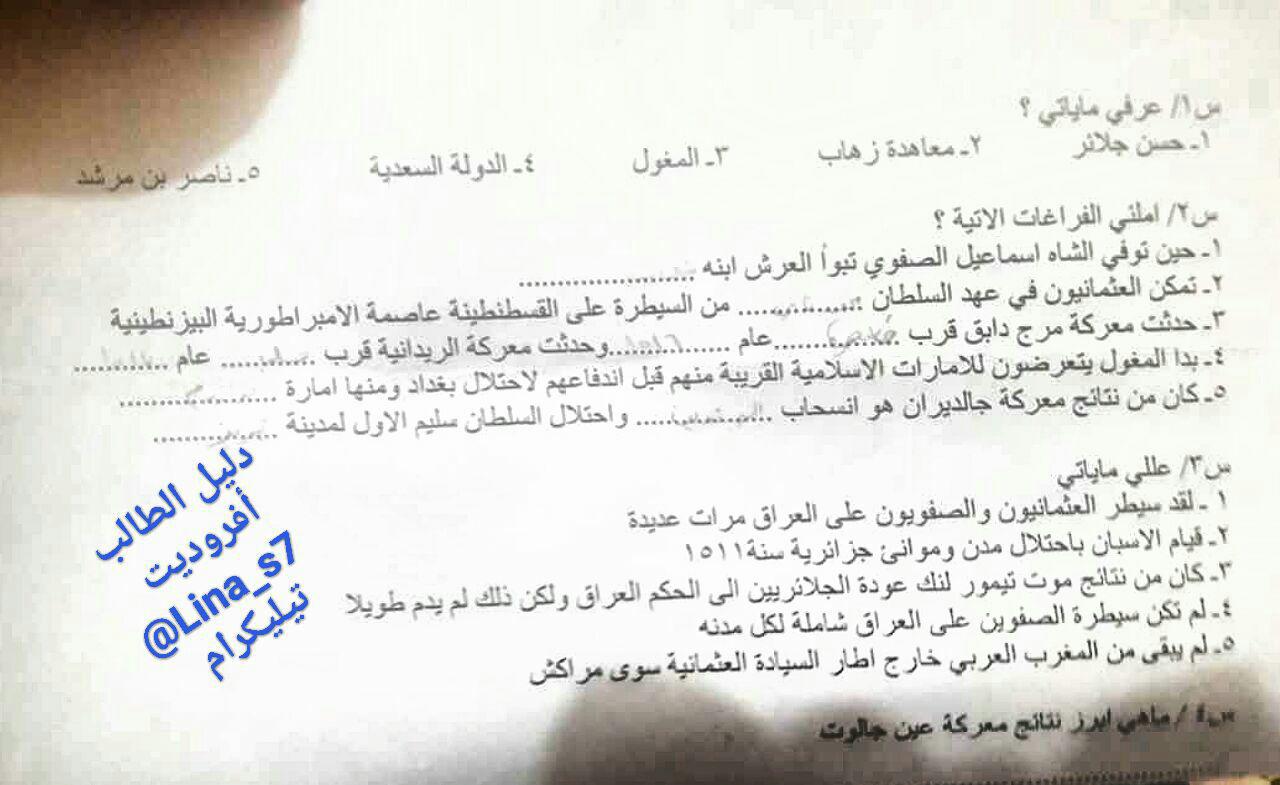 س١/ عرفي ماياتي ؟
١ـ حسن جلائر ٢ـ معاهدة زهاب ٣ـ المغول ٤ـ الدولة السعدية ٥ـ ناصر بن مرشد
س٢/ املئي الفراغات الاتية ؟
١ـ حين توفي الشاه اسماعيل الصفوي تبوأ العرش ابنه ......................
٢ـ تمكن العثمانيون في عهد السلطان ................ من السيطرة على القسطنطينة عاصمة الامبراطورية البيزنطينية
٣ـ حدثت معركة مرج دابق قرب ................عام ...............وحدثت معركة الريدانية قرب ............ عام ............
٤ـ بدا المغول يتعرضون للامارات الاسلامية القريبة منهم قبل اندفاعهم لاحتلال بغداد ومنها امارة ....................
٥ـ كان من نتائج معركة جالديران هو انسحاب ................. واحتلال السلطان سليم الاول لمدينة ................
س٣/ عللي ماياتي
١ـ لقد سيطر العثمانيون والصفويون على العراق مرات عديدة
٢ـ قيام الاسبان باحتلال مدن وموانئ جزائرية سنة١٥١١
٣ـ كان من نتائج موت تيمور لنك عودة الجلائريين الى الحكم العراق ولكن ذلك لم يدم طويلا
٤ـ لم تكن سيطرة الصفوين على العراق شاملة لكل مدنه
٥ـ لم يبقى من المغرب العربي خارج اطار السيادة العثمانية سوى مراكش
س٤/ ماهي ابرز نتائج معركة عين جالوت
دليل الطالب
أفروديت
@Lina_s7
تيليكرام